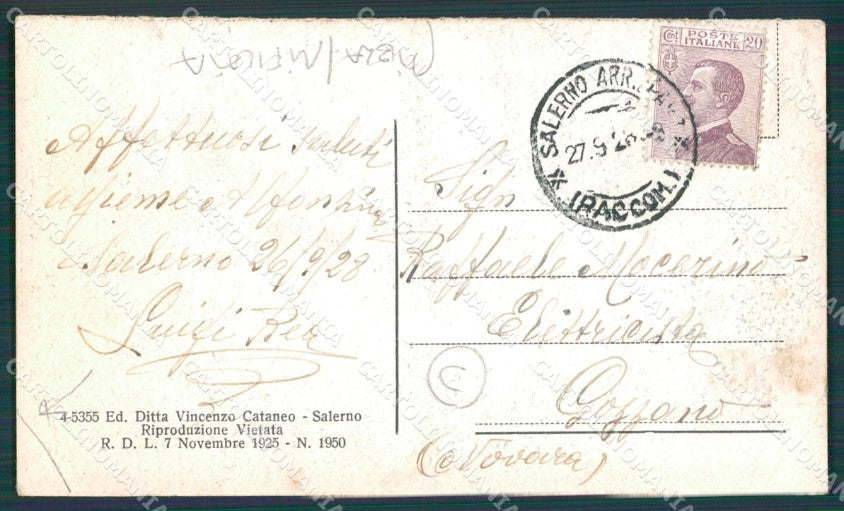 Affettuosi saluti
assieme Alfonsino
Salerno 26/9/28
Luigi Rea
4-5355 Ed. Ditta Vincenzo Cataneo - Salerno
Riproduzione Vietata
R. D. L. 7 Novembre 1925 - N. 1950
Cent 20
POSTE
ITALIANE
SALERNO ARR.
27.9.28
(RACCOM.)
Sign
Raffaele Mocerino
Elettricista
Gozzano
(Novara)
CARTOLINOMANIA